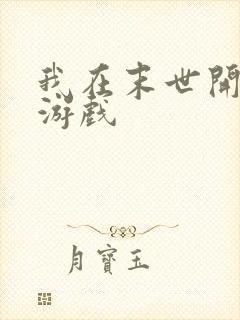 我在末世開
游戏
月寶玉